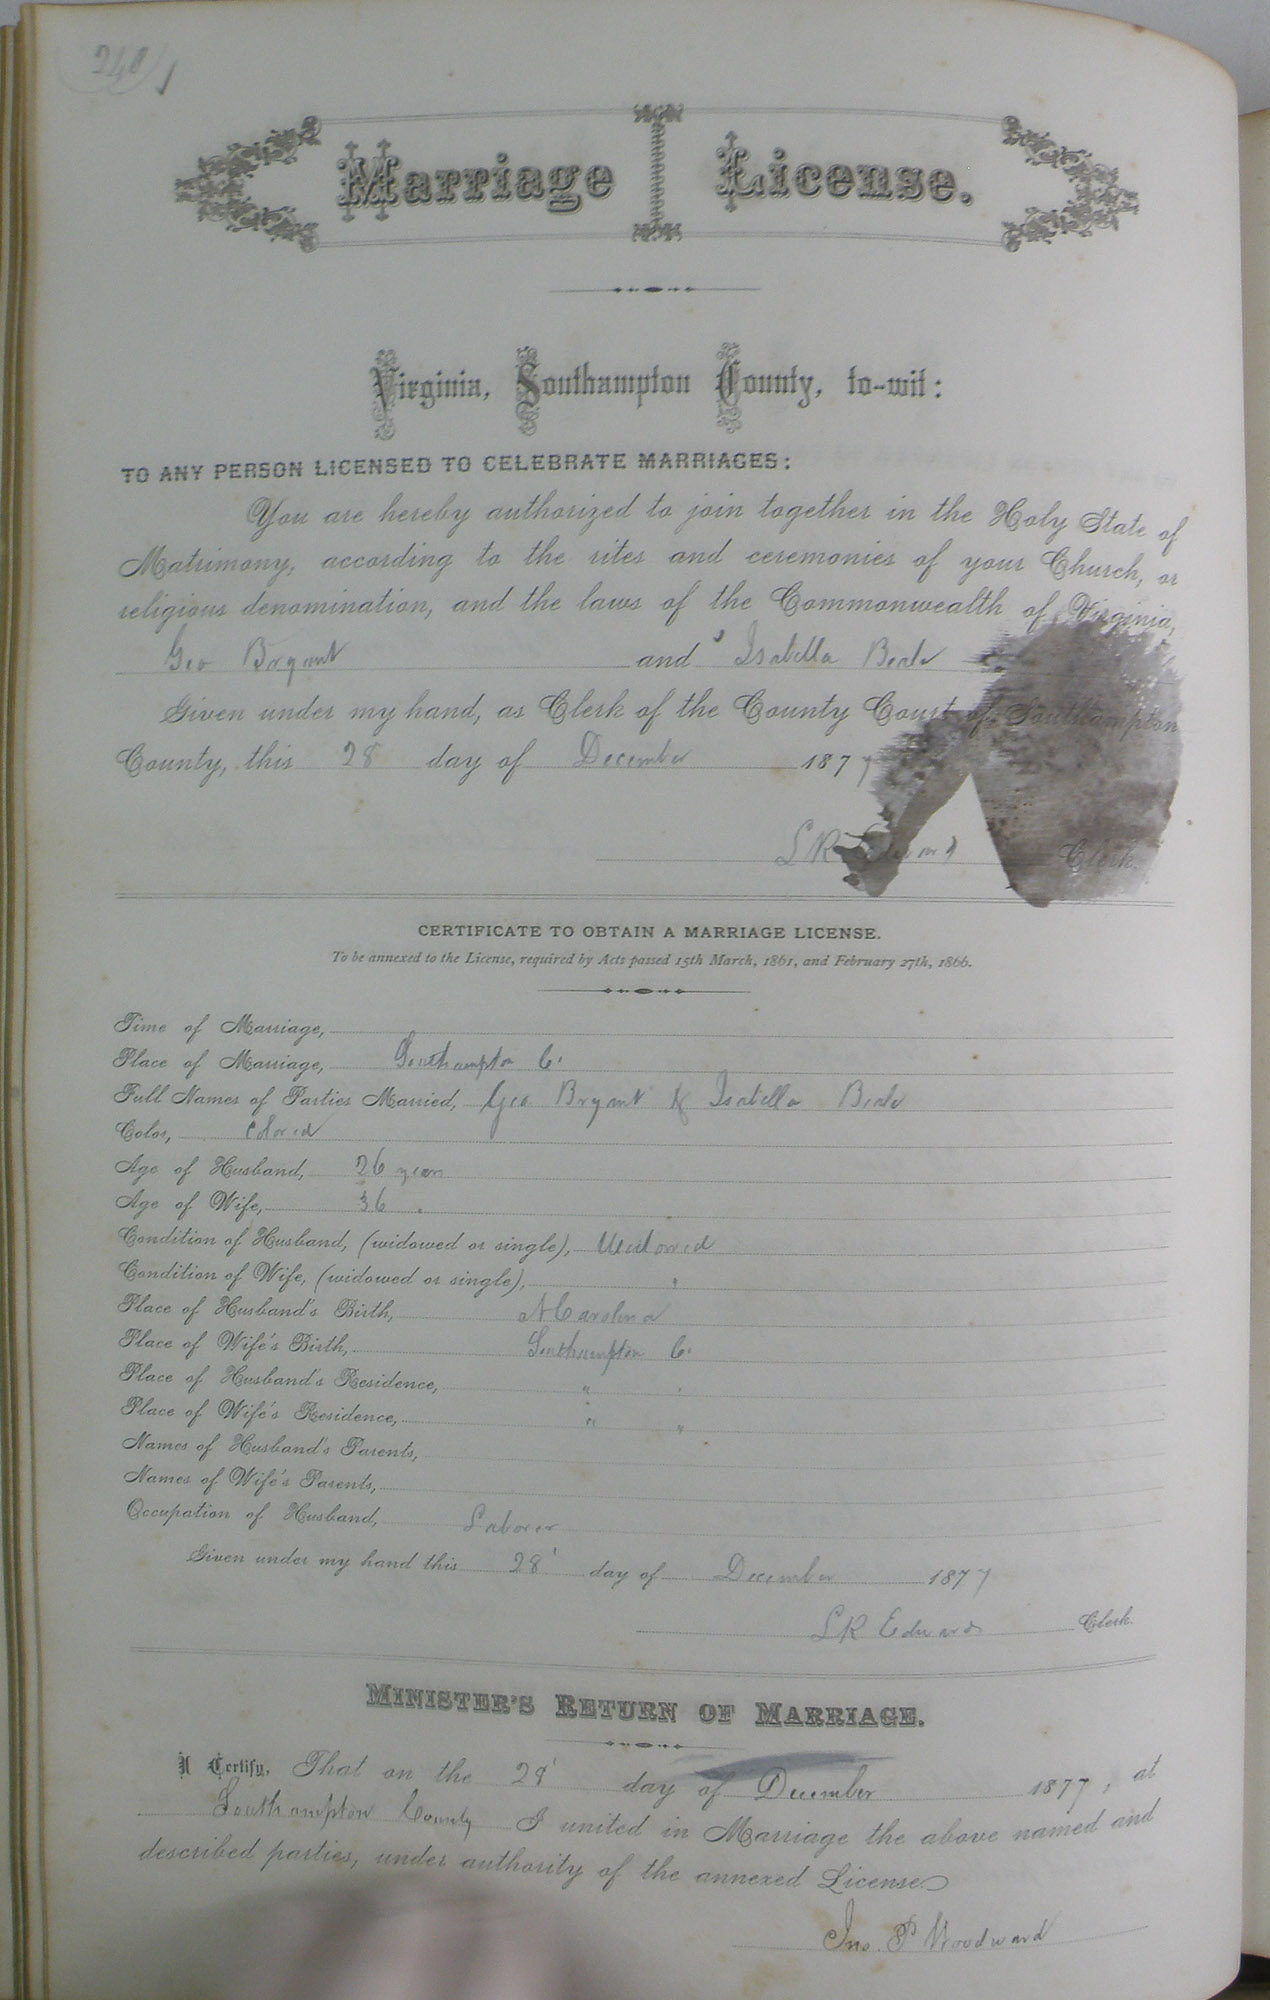 240
Marriage License.
Virginia, Southampton County, to-wit:
TO ANY PERSON LICENSED TO CELEBRATE MARRIAGES:
You are hereby authorized to join together in the Holy State of
Matrimony, according to the rites and ceremonies of your Church, or
religious denomination, and the laws of the Commonwealth of Virginia,
Geo Bryant and Isabella Beale
Given under my hand, as Clerk of the County Court of Southampton
County, this 28 day of December 1877
L R Edwards Clerk.
CERTIFICATE TO OBTAIN A MARRIAGE LICENSE.
To be annexed to the License, required by Acts passed 15th March, 1861, and February 27th, 1866.
Time of Marriage,
Place of Marriage, Southampton Co.
Full Names of Parties Married, Geo Bryant & Isabella Beale
Color, Colored
Age of Husband, 26 years
Age of Wife, 36 "
Condition of Husband, (widowed or single), Widowed
Condition of Wife, (widowed or single), "
Place of Husband's Birth, N Carolina
Place of Wife's Birth, Southampton Co.
Place of Husband's Residence, " "
Place of Wife's Residence, " "
Names of Husband's Parents,
Names of Wife's Parents,
Occupation of Husband, Laborer
Given under my hand this 28 day of December 1877
L R Edwards Clerk.
MINISTER'S RETURN OF MARRIAGE.
I Certify, That on the 28 day of December 1877, at
Southampton County I united in Marriage the above named and
described parties, under authority of the annexed License
Jno. P Woodward